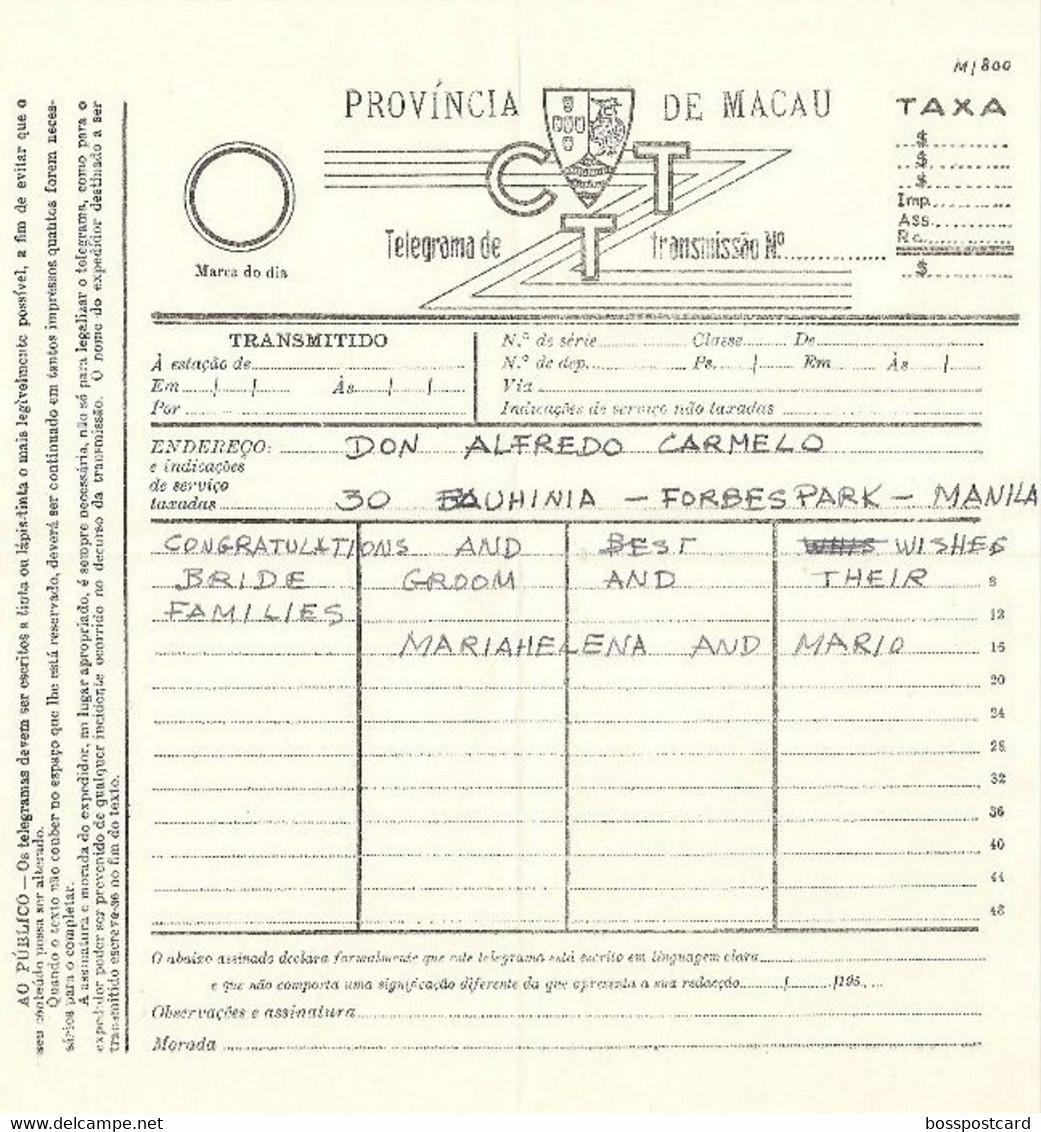 M/800
PROVÍNCIA DE MACAU
TAXA
$
$
$
Imp.
Ass.
Rc.
$
C T T
Marca do dia
Telegrama de
transmissão Nº
TRANSMITIDO
À estação de
Em / /
Às / /
Por
N.º de série Classe De
N.º de dep. Ps. / Em Às /
Via
Indicações de serviço não taxadas
ENDEREÇO: DON ALFREDO CARMELO
e indicações
de serviço
taxadas 30 BAUHINIA - FORBES PARK - MANILA
CONGRATULATIONS AND BEST WISHES
BRIDE GROOM AND THEIR 8
FAMILIES 12
MARIAHELENA AND MARIO 16
20
24
28
32
36
40
44
48
O abaixo assinado declara formalmente que este telegrama está escrito em linguagem clara
e que não comporta uma significação diferente da que apresenta a sua redacção / /195
Observações e assinatura
Morada
AO PÚBLICO — Os telegramas devem ser escritos a tinta ou lápis-tinta o mais legìvelmente possível, a fim de evitar que o
seu conteúdo possa ser alterado.
Quando o texto não couber no espaço que lhe está reservado, deverá ser continuado em tantos impressos quantos forem neces-
sários para o completar.
A assinatura e morada do expedidor, no lugar apropriado, é sempre necessária, não só para legalizar o telegrama, como para o
expedidor poder ser prevenido de qualquer incidente ocorrido no decurso da transmissão. O nome do expedidor destinado a ser
transmitido escreve-se no fim do texto.
bosspostcard